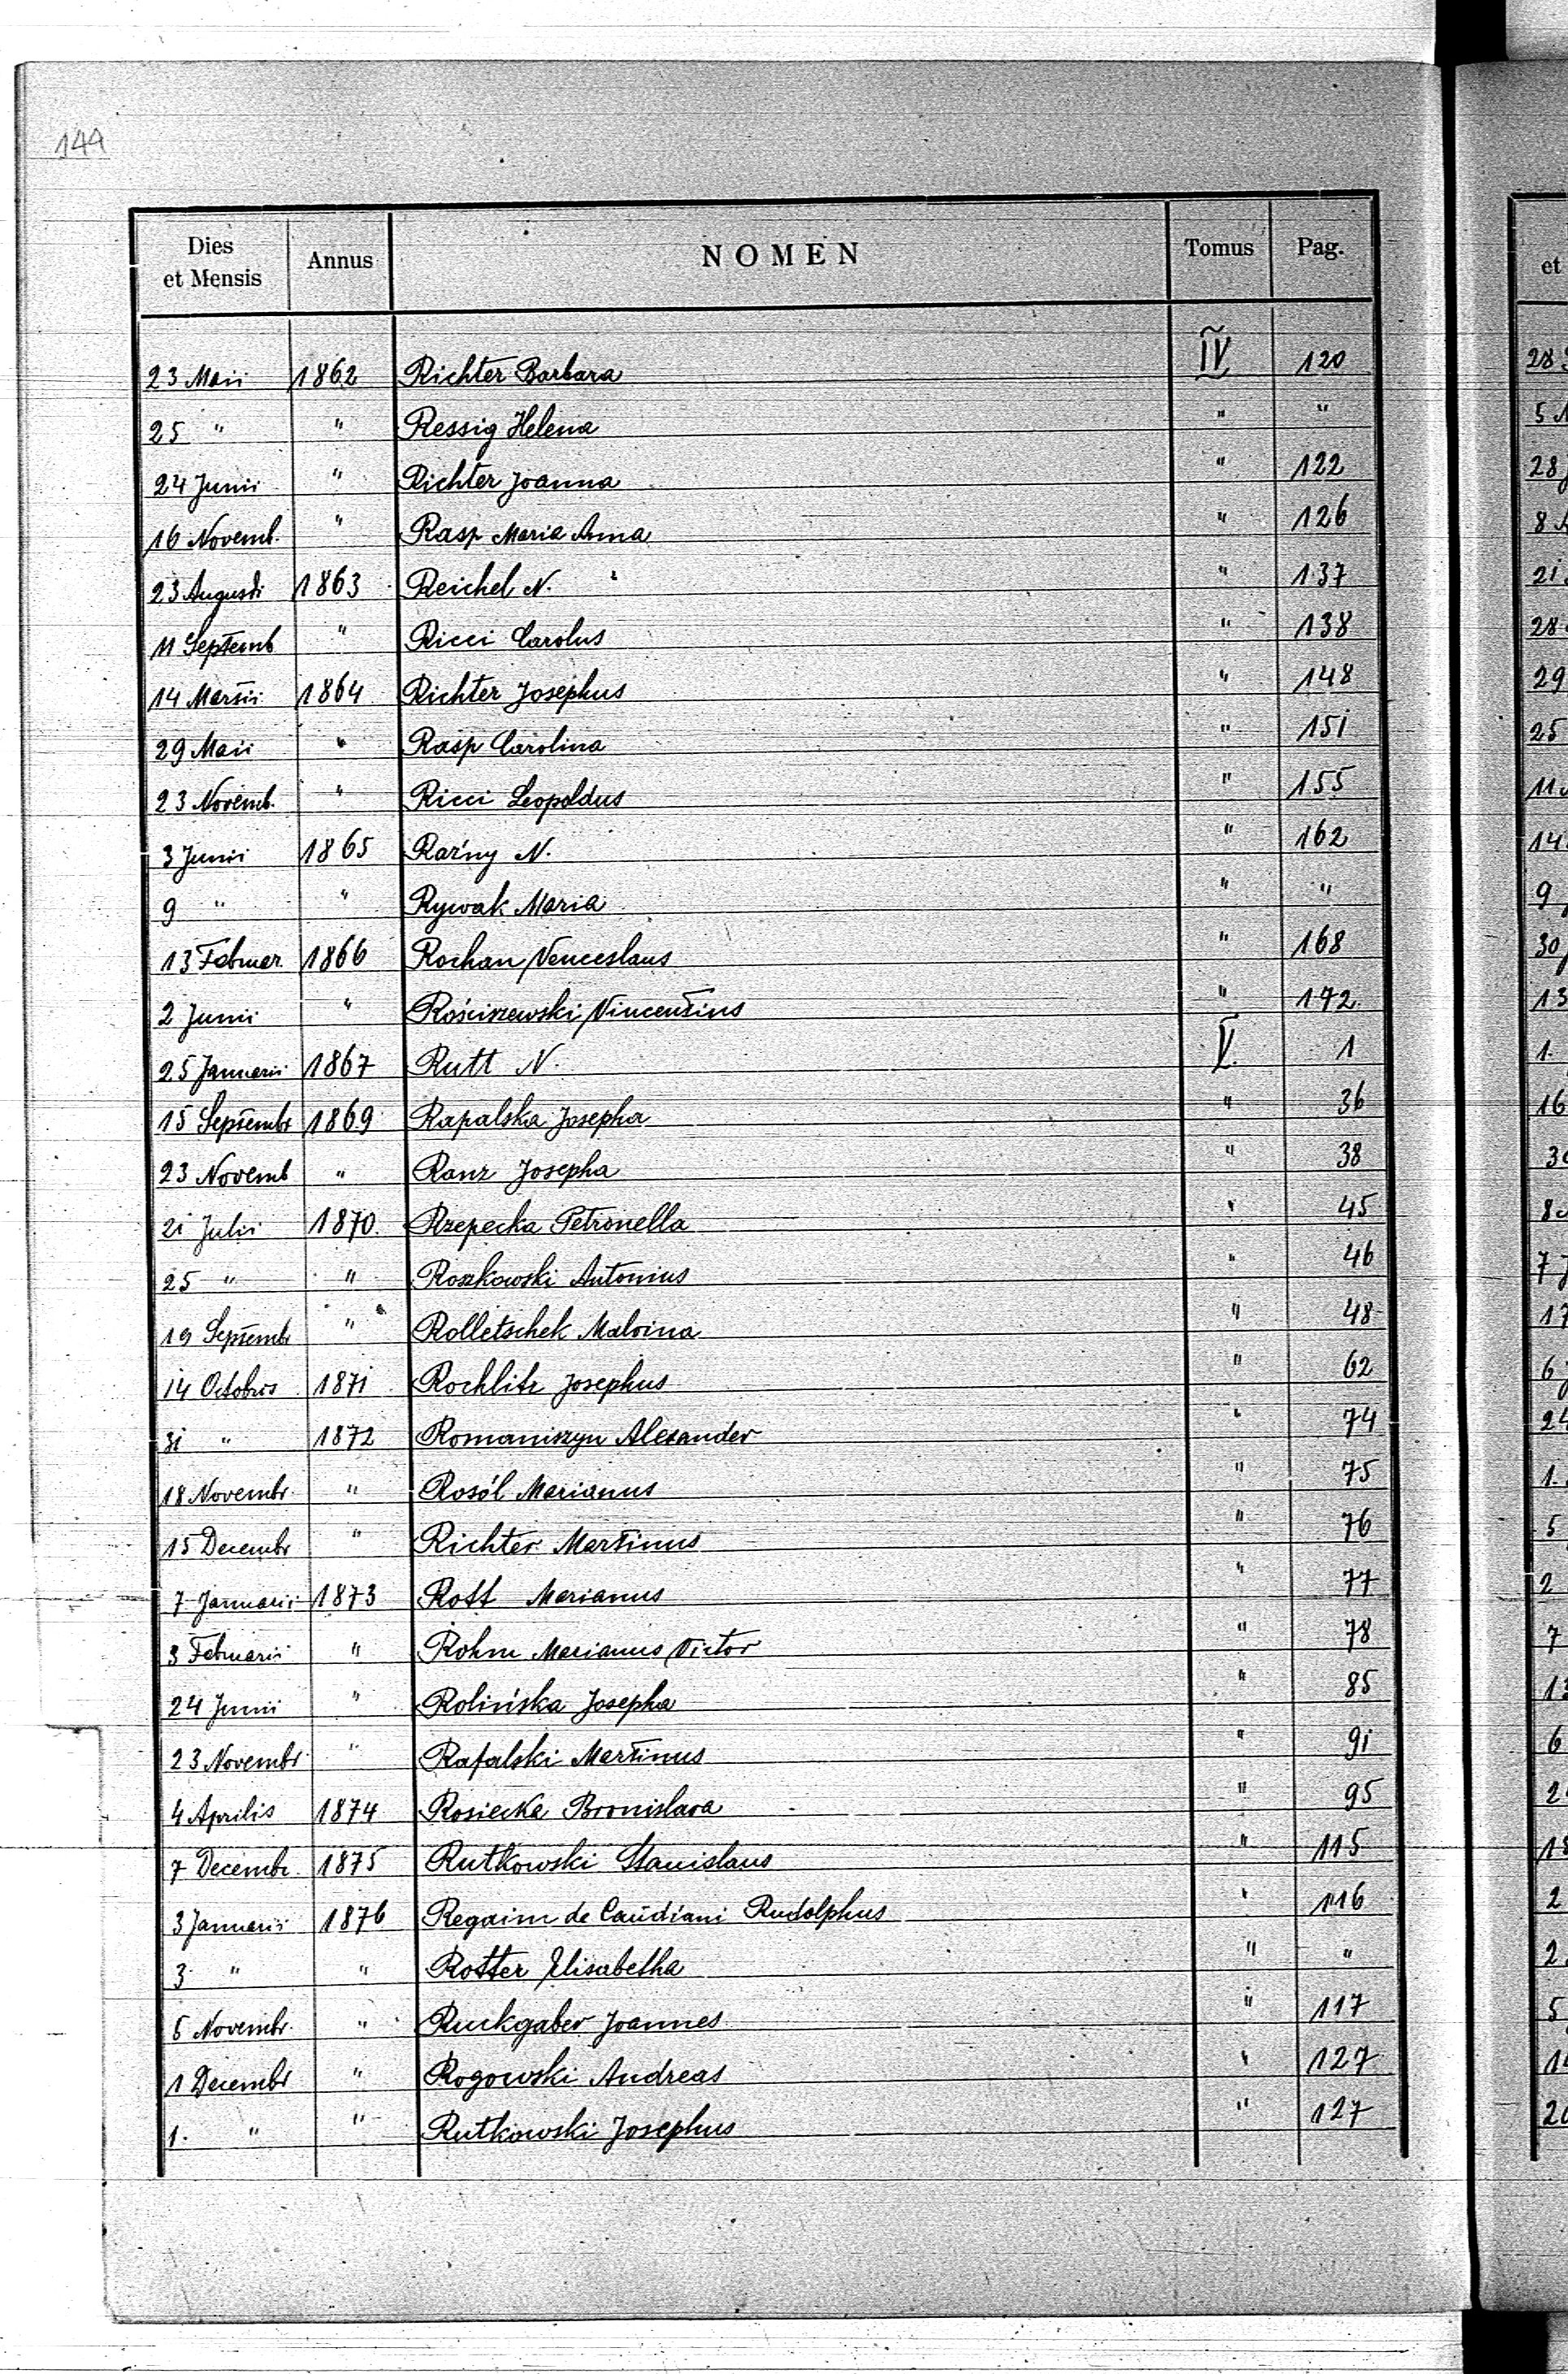 144
Dies et Mensis Annus NOMEN Tomus Pag.
23 Maii 1862 Richter Barbara IV 120
25 " " Ressig Helena " "
24 Junii " Richter Joanna " 122
16 Novemb. " Rasp Maria Anna " 126
23 Augusti 1863 Reichel N. " 137
11 Septemb " Ricci Carolus " 138
14 Martii 1864 Richter Josephus " 148
29 Maii " Rasp Carolina " 151
23 Novemb. " Ricci Leopoldus " 155
3 Junii 1865 Raźny N. " 162
9 " " Rywak Maria " "
13 Februar. 1866 Rochan Venceslaus " 168
2 Junii " Rościszewski Vincentius " 172.
25 Januarii 1867 Rutt N. V. 1
15 Septembr 1869 Rapalska Josepha " 36
23 Novemb " Ranz Josepha " 38
21 Julii 1870. Rzepecka Petronella " 45
25 " " Roszkowski Antonius " 46
19 Septembr " Rolletschek Malvina " 48
14 Octobris 1871 Rochlitz Josephus " 62
31 " 1872 Romaniszyn Alexander " 74
18 Novembr. " Rosół Marianus " 75
15 Decembr " Richter Martinus " 76
7 Januarii 1873 Rott Marianus " 77
3 Februarii " Rohm Marianus Victor " 78
24 Junii " Rolińska Josepha " 85
23 Novembr. " Rafalski Martinus " 91
4 Aprilis 1874 Rosiecka Bronislava " 95
7 Decembr. 1875 Rutkowski Stanislaus " 115
3 Januarii 1876 Regaim de Caudiani Rudolphus " 116
3 " " Rotter Elisabetha " "
6 Novembr. " Ruckgaber Joannes " 117
1 Decembr " Rogowski Andreas " 127
1. " " Rutkowski Josephus " 127